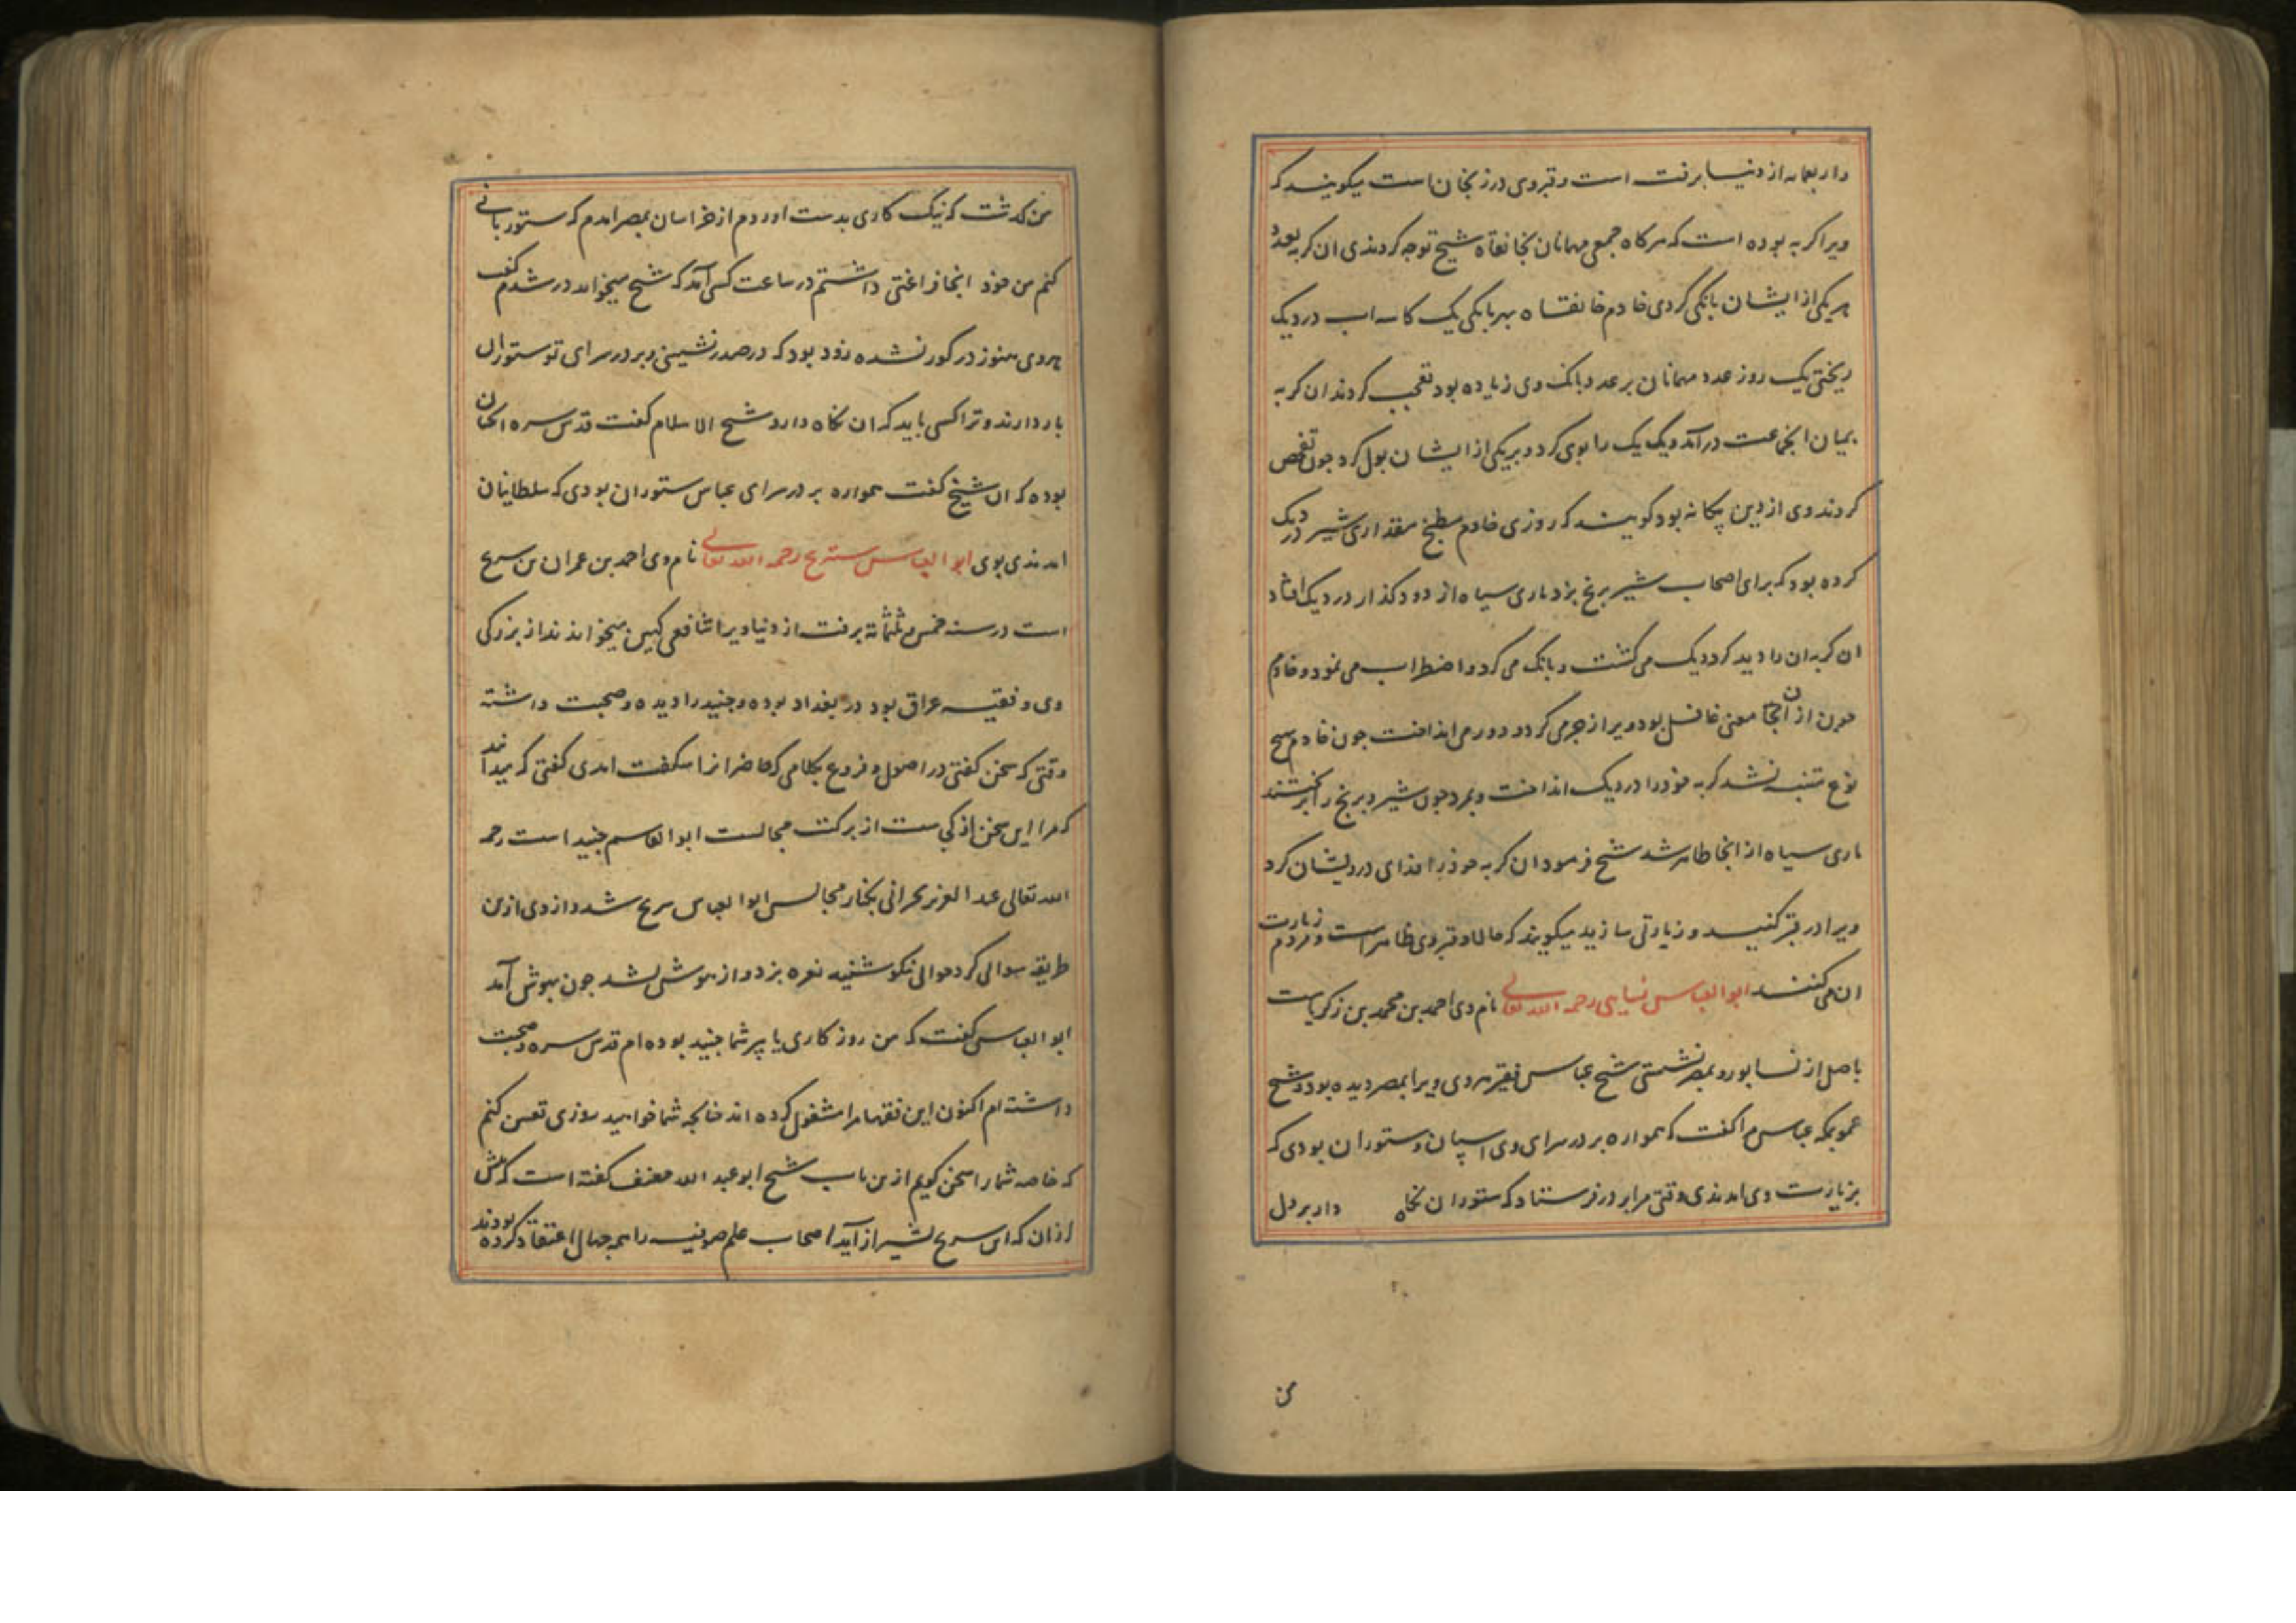 واربعمایه از دنیا برفت است و قبر وی در زنجان است میکویند که
ویرا کربه بوده است که هرکاه جمعی مهمانان بخانقاه شیخ توجه کردندی ان کربه بعدد
هریکی از ایشان بانکی کردی خادم خانقاه بهر بانکی یک کاسه اب در دیک
ریختی یک روز عدد مهمانان بر عدد بانک وی زیاده بود تعجب کردند ان کربه
بمیان انجماعت درآمد و یک یک را بوی کرد و بر یکی از ایشان بول کرد چون تفحص
کردند وی از دین بیکانه بود کویند که روزی خادم مطبخ مقداری شیر در دیک
کرده بود که برای اصحاب شیر برنج بزد ماری سیاه از دودکذار در دیک افتاد
ان کربه ان را دید کرد دیک می کشت و بانک می کرد و اضطراب می نمود و خادم
چون از آن معنی غافل بود ویرا زجر می کرد و دور می انداخت چون خادم بهیچ
نوع متنبه نشد کربه خود را در دیک انداخت و بمرد چون شیر و برنج را بریختند
ماری سیاه از انجا ظاهر شد شیخ فرمود ان کربه خود را فدای درویشان کرد
ویرا در قبر کنید و زیارتی سازید میکویند که حالا قبر وی ظاهر است و مردم زیارت
ان می کنند ابو العباس نسایی رحمه الله تعالی نام وی احمد بن محمد بن زکریاست
باصل از نسا بود و بمصر نشستی شیخ عباس فقیر هروی ویرا بمصر دیده بود و شیخ
عمو بمکه عباس را کفت که همواره بر در سرای وی اسپان و ستوران بودی که
بزیارت وی امدندی وقتی مرا بر در فرستاد که ستوران نکاه دار بر دل
من
من کذشت که نیک کاری بدست اوردم از خراسان بمصر امدم که ستوربانی
کنم من خود انجا فراغتی داشتم در ساعت کسی آمد که شیخ میخواند در شدم کفت
هروی هنوز در کور نشده زود بود که در صدر نشینی و بر در سرای تو ستوران
باز دارند و ترا کسی باید که ان نکاه دارد شیخ الاسلام کفت قدس سره انچنان
بوده که ان شیخ کفت همواره بر در سرای عباس ستوران بودی که سلطانیان
امدندی بوی ابو العباس سریج رحمه الله تعالی نام وی احمد بن عمران بن سریج
است در سنه خمس و ثلثمائة برفت از دنیا ویرا شافعی کهین میخواندند از بزرکی
وی و فقیه عراق بود در بغداد بوده و جنید را دیده و صحبت داشته
وقتی که سخن کفتی در اصول و فروع بکلامی که حاضرانرا شکفت امدی کفتی که میدانند
که مرا این سخن از کجاست از برکت مجالست ابو القاسم جنید است رحمه
الله تعالی عبد العزیز بحرانی بکنار مجالس ابو العباس سریج شد و از وی ازین
طریقه سوالی کرد جوابی نیکو شنید نعره بزد و از هوش بشد چون بهوش آمد
ابو العباس کفت که من روزکاری با پیر شما جنید بوده ام قدس سره و صحبت
داشته ام اکنون این فقها مرا مشغول کرده اند چنانچه شما خواهید روزی تعیین کنم
که خاصه شما را سخن کویم ازین باب شیخ ابو عبد الله خفیف کفته است که پیش
ازان که ابن سریج بشیراز آید اصحاب علم صوفیه را همه جهال اعتقاد کرده بودند